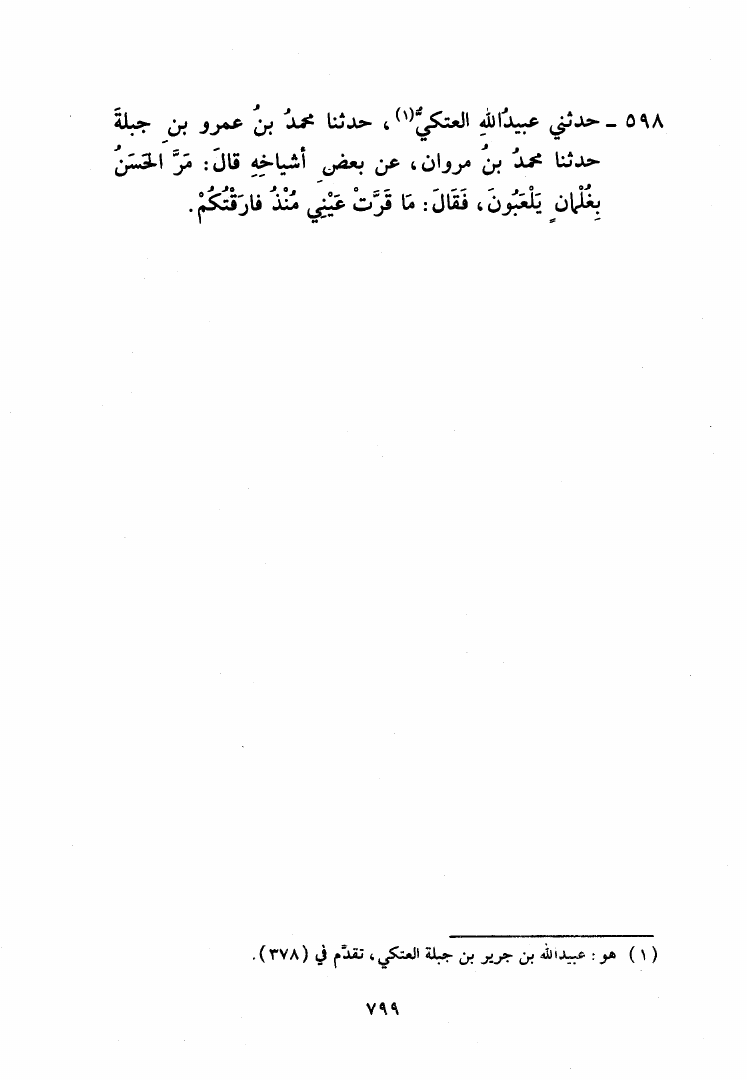 ٥٩٨ ـ حدثني عبيدُاللهِ العتكيُّ(١)، حدثنا محمدُ بنُ عمرو بنِ جبلةَ
حدثنا محمدُ بنُ مروان، عن بعضِ أشياخِهِ قالَ: مَرَّ الحَسَنُ
بِغُلْمانٍ يَلْعَبُونَ، فَقَالَ: مَا قَرَّتْ عَيْنِي مُنْذُ فارَقْتُكُمْ.
(١) هو: عبيدالله بن جرير بن جبلة العتكي، تقدَّم في (٣٧٨).
٧٩٩